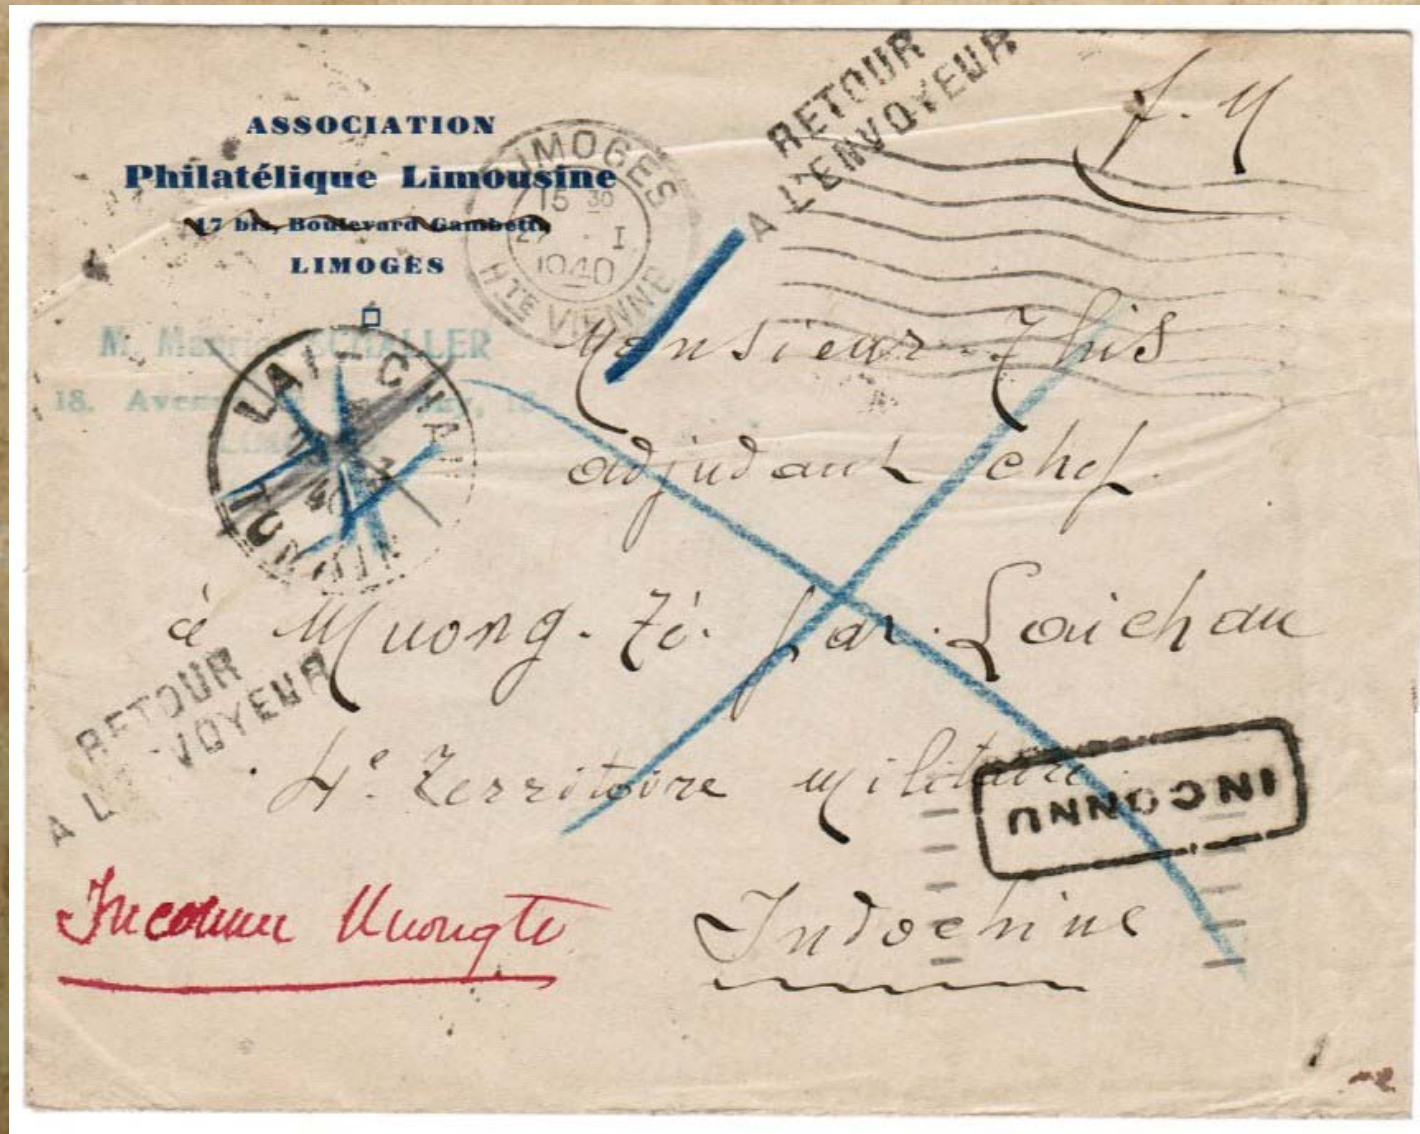 ASSOCIATION
Philatélique Limousine
17 bis, Boulevard Gambetta
LIMOGES
LIMOGES
15 30
1940
HTE VIENNE
RETOUR
A L'ENVOYEUR
F. M
M. Maurice SCHALLER
18. 18
LAI-CHAU
TONKIN
Monsieur This
adjudant chef.
à Muong-Té. par. Laichau
4e. Territoire militaire.
Indochine
RETOUR
A L' VOYEUR
INCONNU
Inconnu Muongte